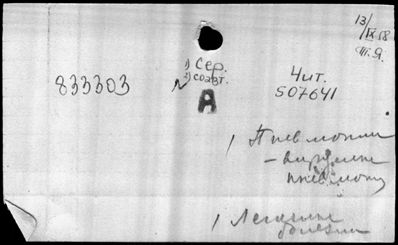 13/
IX 58
833303
1) Сер.
2) соавт.
А
Чит.
507641
1 Пневмонии
- вирусные
пневмонии
1 Легкие
болезни